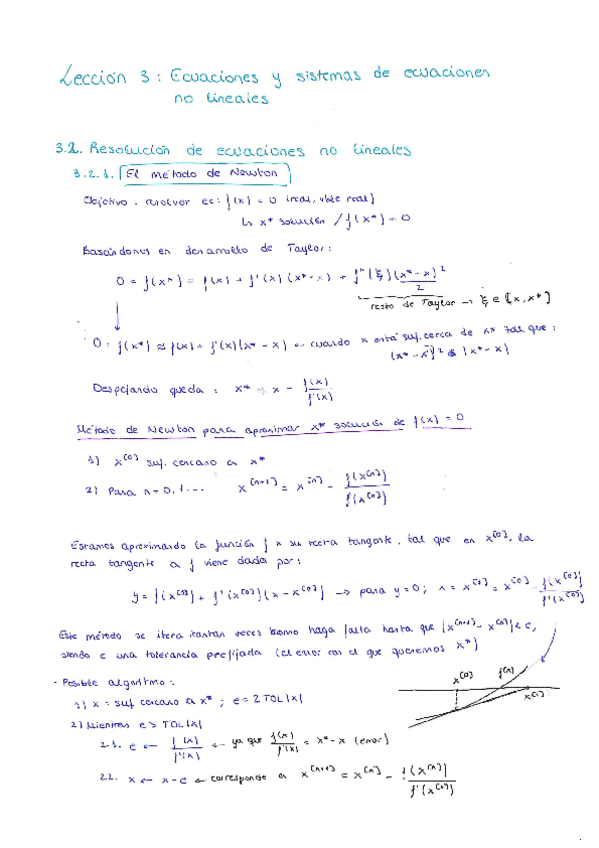 Lección 3: Ecuaciones y sistemas de ecuaciones
no lineales
3.2. Resolución de ecuaciones no lineales
3.2.1. El método de Newton
Objetivo: resolver ec: f(x) = 0 (real, vble real)
↳ x* solución / f(x*) = 0
Basándonos en desarrollo de Taylor:
0 = f(x*) = f(x) + f'(x)(x*-x) + f''(ξ)(x*-x)²/2
resto de Taylor → ξ ∈ [x, x*]
0 = f(x*) ≈ f(x) + f'(x)(x* - x) ← cuando x está suf. cerca de x* tal que:
(x* - x)² << |x* - x|
Despejando queda: x* ≈ x - f(x)/f'(x)
Método de Newton para aproximar x* solución de f(x) = 0
1) x^[0] suf. cercano a x*
2) Para n = 0, 1... x^[n+1] = x^[n] - f(x^[n])/f'(x^[n])
Estamos aproximando la función f x su recta tangente, tal que en x^[0], la
recta tangente a f viene dada por:
y = f(x^[0]) + f'(x^[0])(x - x^[0]) → para y=0; x = x^[1] = x^[0] - f(x^[0])/f'(x^[0])
Este método se itera tantas veces como haga falta hasta que |x^[n+1] - x^[n]| < e,
siendo e una tolerancia prefijada (el error con el que queremos x*)
- Posible algoritmo:
x^[0] f(x)
x^[1]
1) x: suf cercano a x*; e = 2 TOL|x|
2) Mientras e > TOL|x|
2.1. e ← f(x)/f'(x) ← ya que f(x)/f'(x) = x* - x (error)
2.2. x ← x - e ← corresponde a x^[n+1] = x^[n] - f(x^[n])/f'(x^[n])